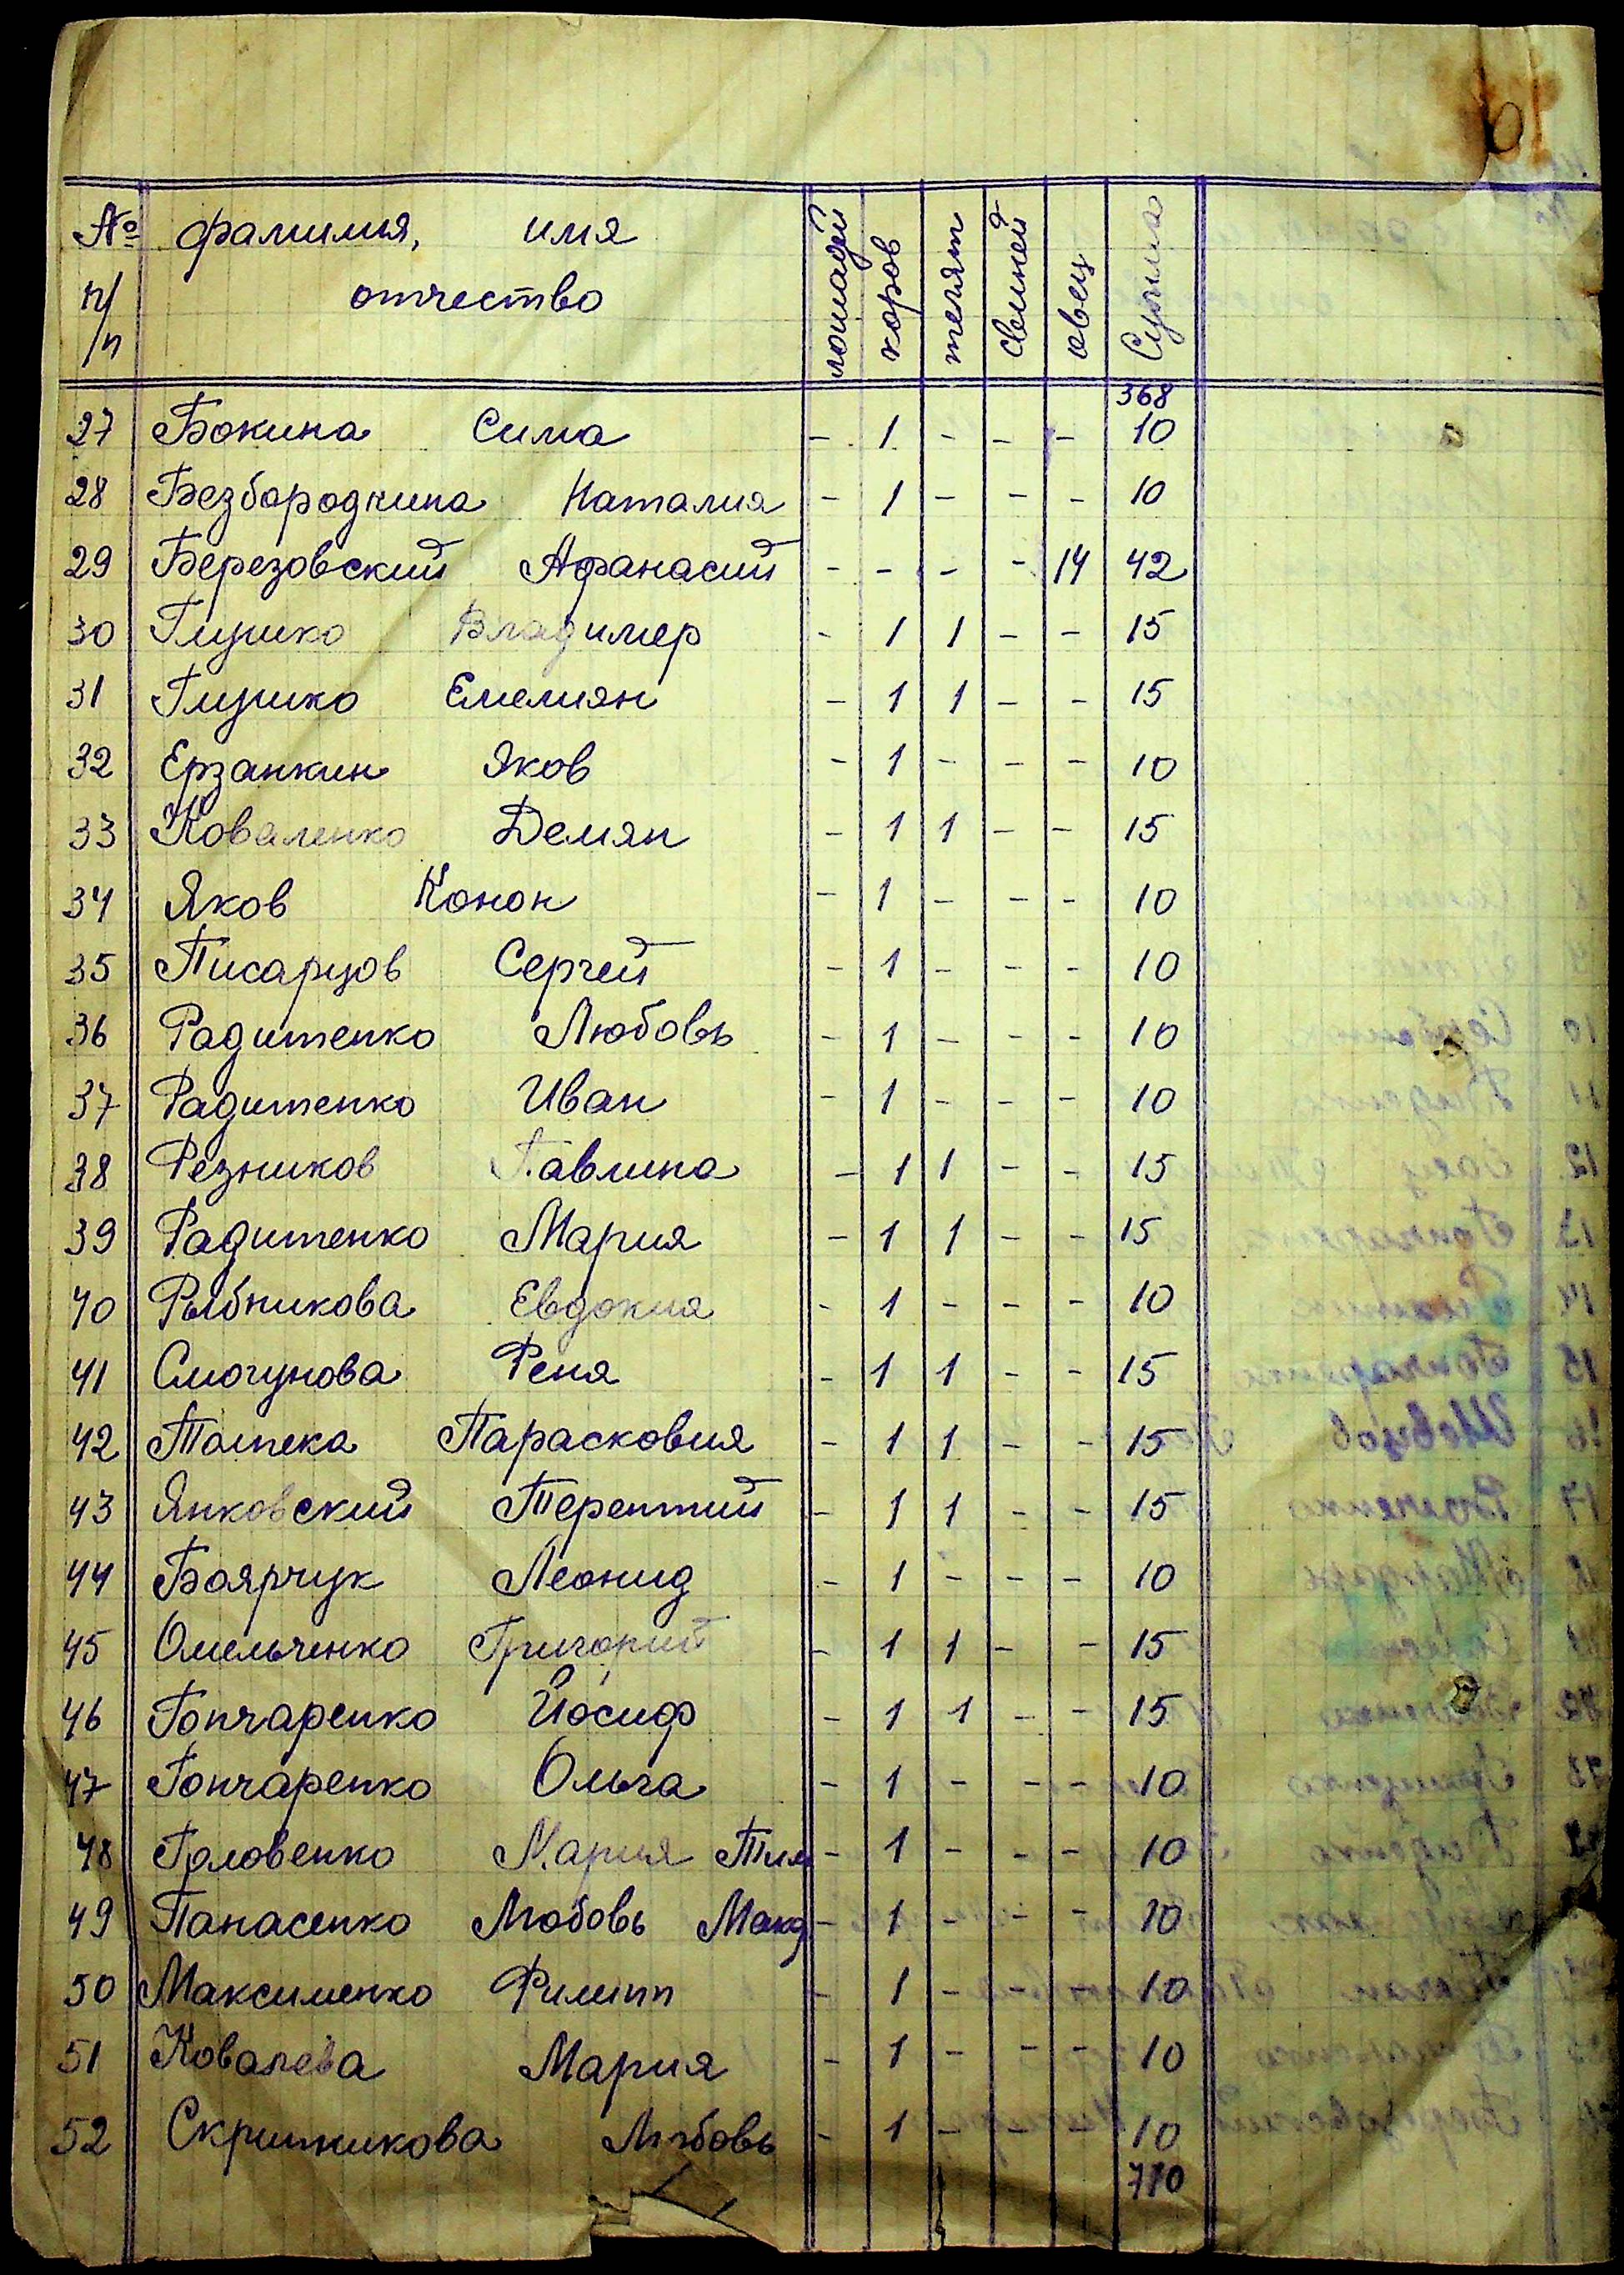 № фамилия, имя
п/п отчество
лошадей коров телят свиней овец Сумма
368
27 Бокина Сима - 1 - - - 10
28 Безбородкина Наталия - 1 - - - 10
29 Березовский Афанасий - - - - 14 42
30 Глушко Владимер - 1 1 - - 15
31 Глушко Емелиян - 1 1 - - 15
32 Ерзанкин Яков - 1 - - - 10
33 Коваленко Демян - 1 1 - - 15
34 Яков Конон - 1 - - - 10
35 Писарцов Сергей - 1 - - - 10
36 Радитенко Любовь - 1 - - - 10
37 Радитенко Иван - 1 - - - 10
38 Резников Павлина - 1 1 - - 15
39 Радитенко Мария - 1 1 - - 15
40 Рыбникова Евдокия - 1 - - - 10
41 Смогунова Феня - 1 1 - - 15
42 Парасковия - 1 1 - - 15
43 Янковский Терентий - 1 1 - - 15
44 Боярчук Леонид - 1 - - - 10
45 Омельченко Григорий - 1 1 - - 15
46 Гончаренко Йосиф - 1 1 - - 15
47 Гончаренко Ольга - 1 - - - 10
48 Головенко Мария Тим - 1 - - - 10
49 Панасенко Любовь - 1 - - - 10
50 Максименко Филипп - 1 - - - 10
51 Ковалева Мария - 1 - - - 10
52 Скрипникова Любовь - 1 - - - 10
710